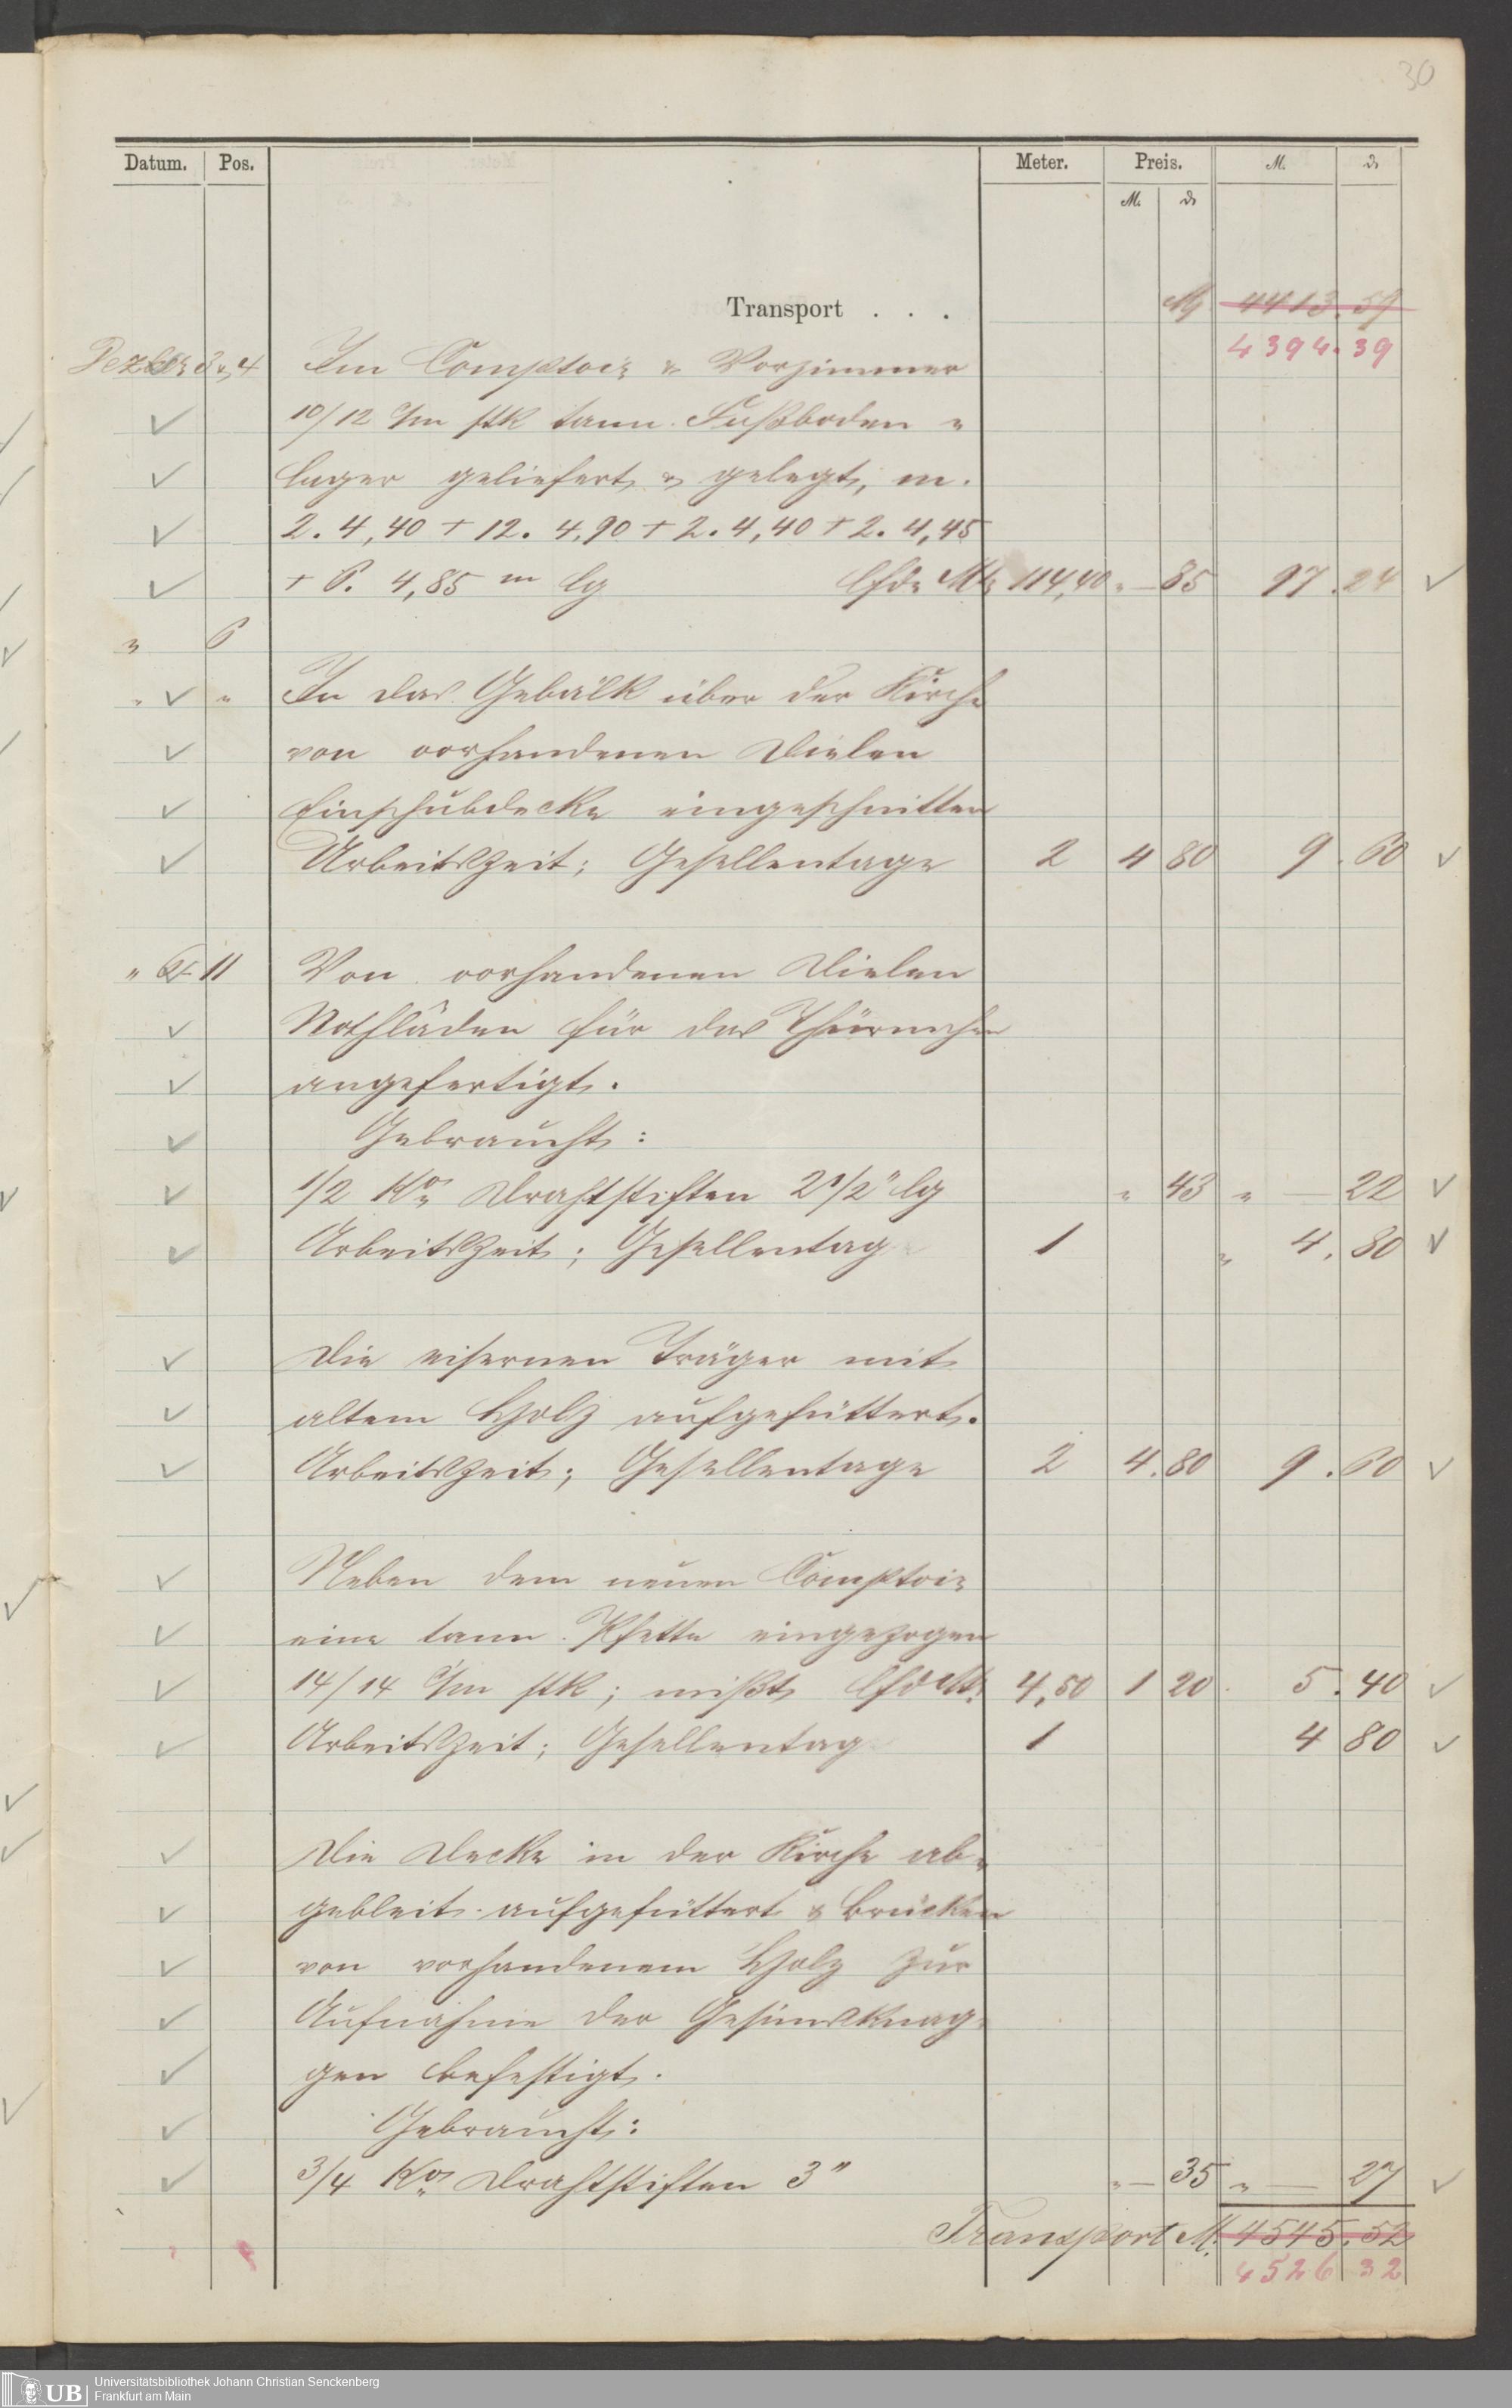 30
Datum. Pos. Meter. Preis. M. ₰
M. ₰
Transport . . . M 4413.59
4394.39
Dezbr 3 u. 4 Im Comptoir u. Vorzimmer
10/12 c/m stk tann. Fußboden =
lager geliefert u. gelegt, m.
2. 4,40 + 12. 4,90 + 2. 4,40 + 2. 4,45
+ 6. 4,85 m lg lfde Mtr 114,40 " — 85 97.24
" 6
" " In das Gebälk über der Kirche
von vorhandenen Dielen
Einschubdecke eingeschnitten
Arbeitszeit; Gesellentage 2 4 80 9.60
" 11 Von vorhandenen Dielen
Nothläden für das Thürmchen
angefertigt.
Gebraucht:
1/2 Ko Drahtstiften 2 1/2" lg " 43 " — 22
Arbeitszeit; Gesellentag 1 " 4.80
Die eisernen Träger mit
altem Holz aufgefüttert.
Arbeitszeit; Gesellentage 2 4.80 9.60
Neben dem neuen Comptoir
eine tann. Pfette eingezogen
14/14 c/m stk; mißt lfd Mtr. 4,50 1 20 5.40
Arbeitszeit; Gesellentag 1 4 80
Die Decke in der Kirche ab=
gebleit. aufgefüttert & Brücken
von vorhandenem Holz zur
Aufnahme der Gesimsknag=
gen befestigt.
Gebraucht:
3/4 Ko Drahtstiften 3" " — 35 " — 27
Transport M. 4545.52
4526 32
UB Universitätsbibliothek Johann Christian Senckenberg
Frankfurt am Main